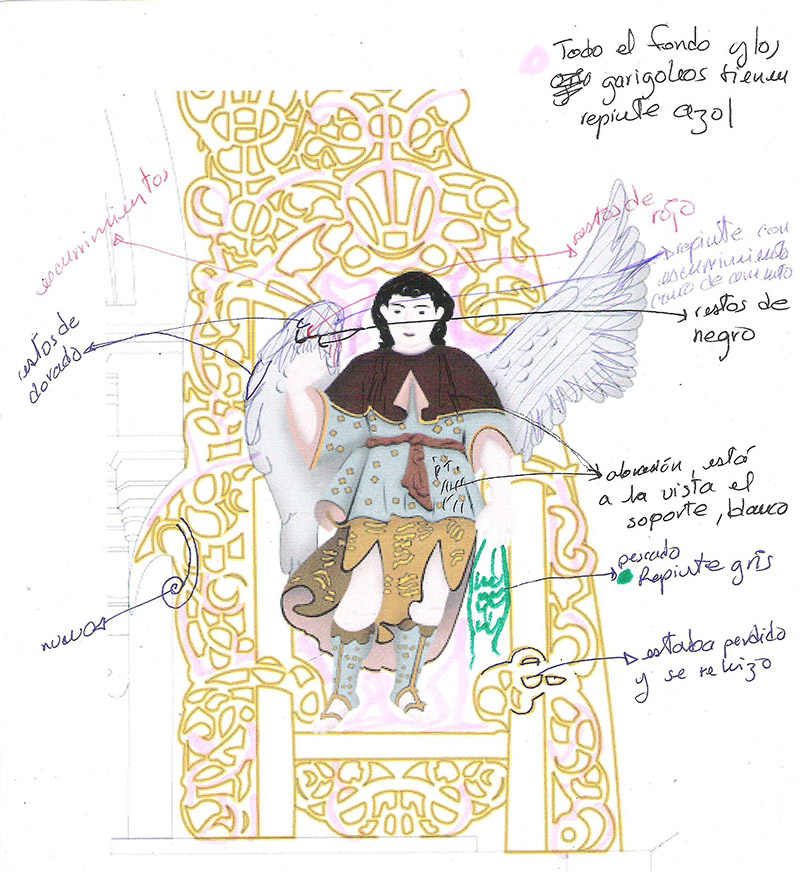 Todo el fondo y los
garigoleos tienen
repinte azol
escurrimientos
restos de
rojo
repinte con
escurrimiento
como de cemento
restos de
negro
restos de
dorado
abrasión, está
a la vista el
soporte, blanco
pescado
Repinte gris
nuevo
estaba perdido
y se rehizo